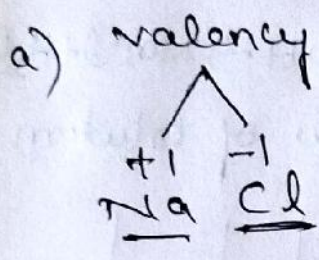 a) valency
+1 -1
Na Cl